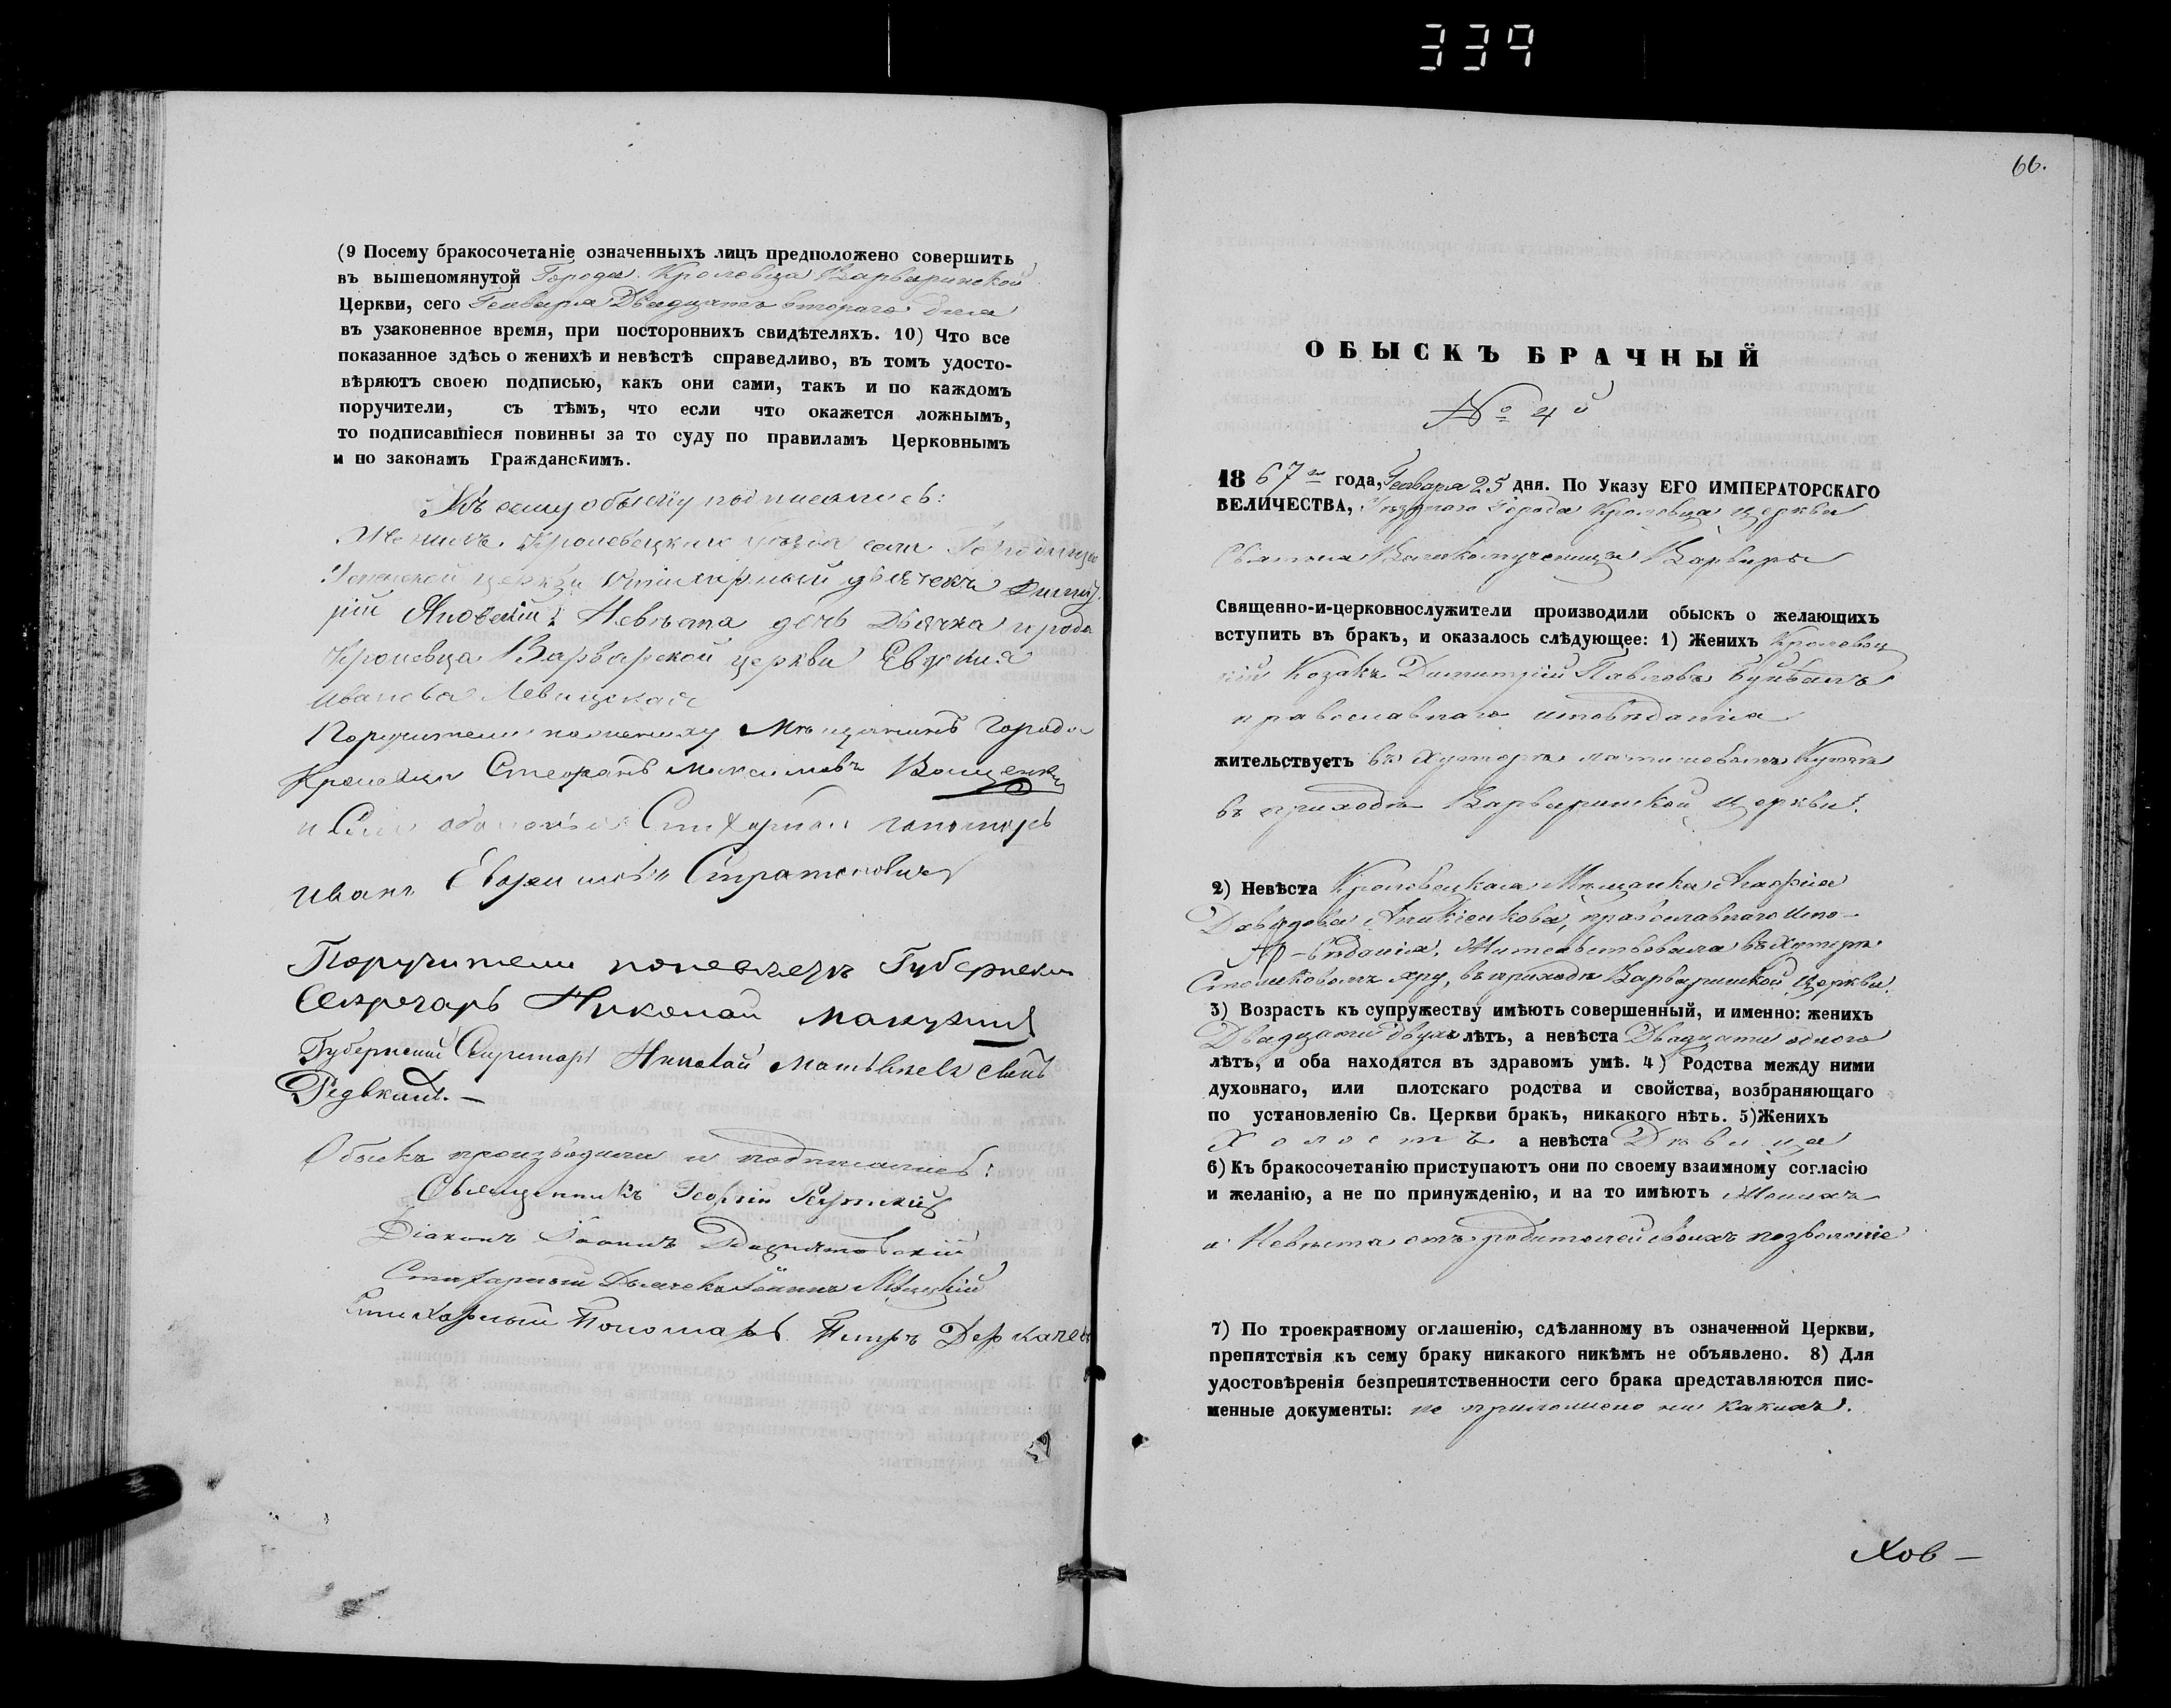 339
(9 Посему бракосочетаніе означенныхъ лицъ предположено совершить
въ вышепомянутой Города Кролевца Варваринской
Церкви, сего Генваря Двадцать втораго дня
въ узаконенное время, при постороннихъ свидѣтеляхъ. 10) Что все
показанное здѣсь о женихѣ и невѣстѣ справедливо, въ томъ удосто-
вѣряютъ своею подписью, какъ они сами, такъ и по каждомъ
поручители, съ тѣмъ, что если что окажется ложнымъ,
то подписавшіеся повинны за то суду по правиламъ Церковнымъ
и по законамъ Гражданскимъ.
Къ сему обыску подписались:
Женихъ Кролевецкаго уѣзда села
церкви Стихарный дьячекъ Димит
рій Яновскій; Невѣста дочь Дьячка города
Кролевца Варварской церкви Евдокия
Иванова Левицская
Поручители по жениху Мѣщанинъ Города
Кролевца Стефанъ Максимовъ
Стихарный пономарь
Иванъ Стратоновичъ
Поручители по невѣстѣ Губернски
Секретарь Николай
Губернский Секретарь Николай Матвѣевъ сынъ
Редькинъ. —
Обыскъ производили и подписались:
Священникъ Георгій
Діаконъ Іоаннъ
Стихарный Дьячекъ Іоаннъ
Стихарный Пономарь Петръ
66.
ОБЫСКЪ БРАЧНЫЙ
№ 4й
1867го года, Генваря 25 дня. По Указу ЕГО ИМПЕРАТОРСКАГО
ВЕЛИЧЕСТВА, Уѣзднаго Города Кролевца церкви
Святыя Великомученицы Варвары
Священно-и-церковнослужители производили обыскъ о желающихъ
вступить въ бракъ, и оказалось слѣдующее: 1) Женихъ Кролевец
кій Козакъ Димитрій Павловъ
православнаго исповѣданія
жительствуетъ въ хуторѣ
въ приходѣ Варваринской церкви.
2) Невѣста Кролевецкая Мѣщанка Агафія
Давыдова православнаго испо-
вѣданія, Жительствовала въ Хуторѣ
Яру, въ приходѣ Варваринской Церкви.
3) Возрастъ къ супружеству имѣютъ совершенный, и именно: женихъ
Двадцати двухъ лѣтъ, а невѣста Двадцати одного
лѣтъ, и оба находятся въ здравомъ умѣ. 4) Родства между ними
духовнаго, или плотскаго родства и свойства, возбраняющаго
по установленію Св. Церкви бракъ, никакого нѣтъ. 5)Женихъ
Холостъ а невѣста Дѣвица
6) Къ бракосочетанію приступаютъ они по своему взаимному согласію
и желанію, а не по принужденію, и на то имѣютъ Женихъ
и Невѣста отъ родителей своихъ позволеніе
7) По троекратному оглашенію, сдѣланному въ означенной Церкви,
препятствія къ сему браку никакого никѣмъ не объявлено. 8) Для
удостовѣренія безпрепятственности сего брака представляются пис-
менные документы: не приложено ни какихъ.
Хов —